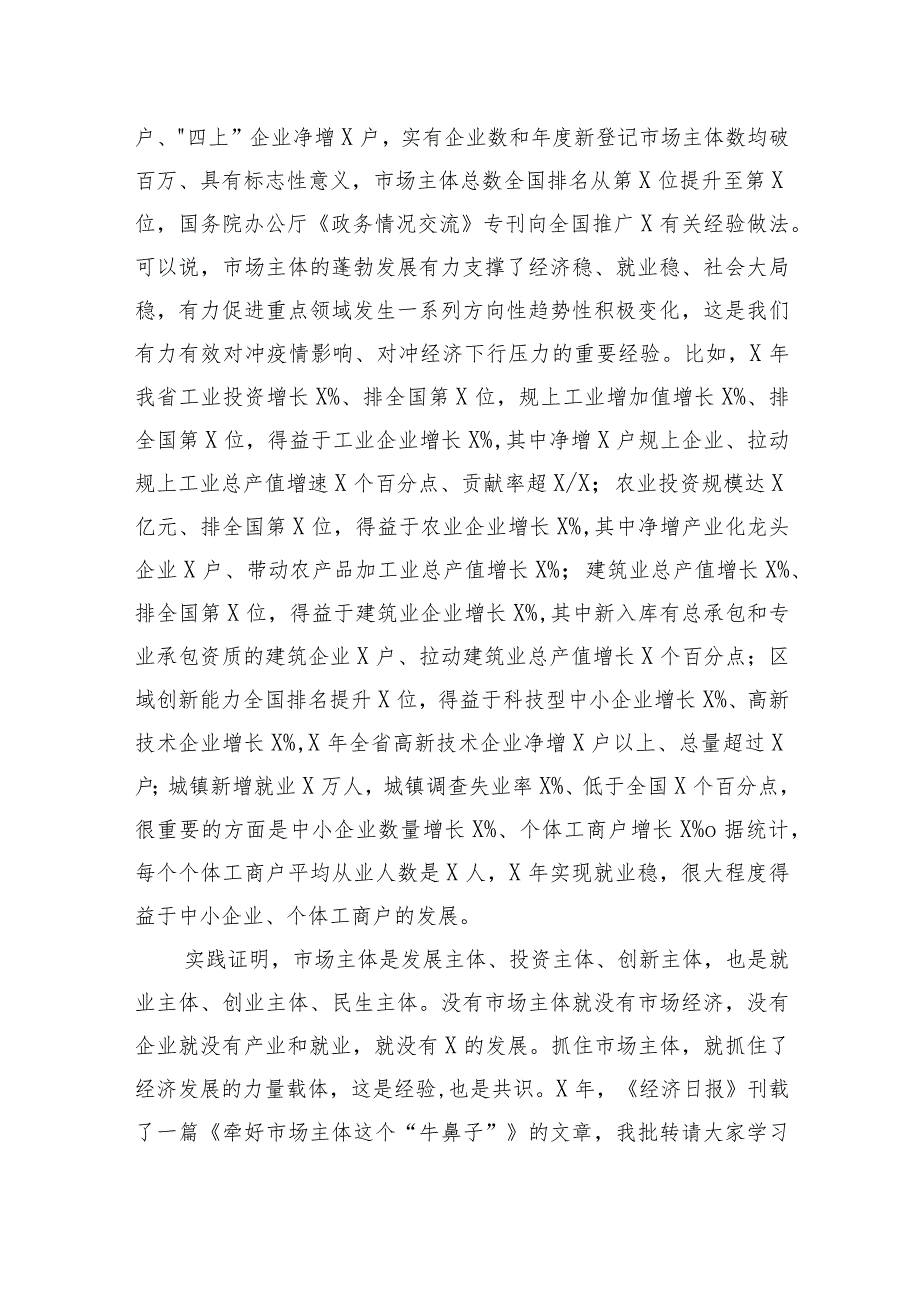 户、"四上”企业净增 X 户，实有企业数和年度新登记市场主体数均破
百万、具有标志性意义，市场主体总数全国排名从第 X 位提升至第 X
位，国务院办公厅《政务情况交流》专刊向全国推广 X 有关经验做法。
可以说，市场主体的蓬勃发展有力支撑了经济稳、就业稳、社会大局
稳，有力促进重点领域发生一系列方向性趋势性积极变化，这是我们
有力有效对冲疫情影响、对冲经济下行压力的重要经验。比如，X 年
我省工业投资增长 X%、排全国第 X 位，规上工业增加值增长 X%、排
全国第 X 位，得益于工业企业增长 X%,其中净增 X 户规上企业、拉动
规上工业总产值增速 X 个百分点、贡献率超 X/X；农业投资规模达 X
亿元、排全国第 X 位，得益于农业企业增长 X%,其中净增产业化龙头
企业 X 户、带动农产品加工业总产值增长 X%；建筑业总产值增长 X%、
排全国第 X 位，得益于建筑业企业增长 X%,其中新入库有总承包和专
业承包资质的建筑企业 X 户、拉动建筑业总产值增长 X 个百分点；区
域创新能力全国排名提升 X 位，得益于科技型中小企业增长 X%、高新
技术企业增长 X%,X 年全省高新技术企业净增 X 户以上、总量超过 X
户；城镇新增就业 X 万人，城镇调查失业率 X%、低于全国 X 个百分点，
很重要的方面是中小企业数量增长 X%、个体工商户增长 X%o 据统计，
每个个体工商户平均从业人数是 X 人，X 年实现就业稳，很大程度得
益于中小企业、个体工商户的发展。
实践证明，市场主体是发展主体、投资主体、创新主体，也是就
业主体、创业主体、民生主体。没有市场主体就没有市场经济，没有
企业就没有产业和就业，就没有 X 的发展。抓住市场主体，就抓住了
经济发展的力量载体，这是经验,也是共识。X 年，《经济日报》刊载
了一篇《牵好市场主体这个“牛鼻子”》的文章，我批转请大家学习